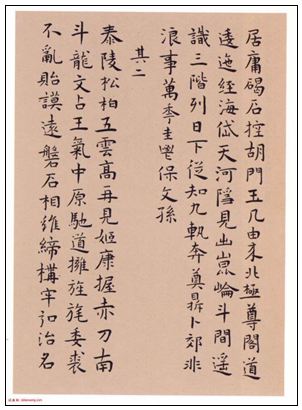 居庸碣石控胡門玉几由來北極尊閣道
逶迤經海岱天河隱見出崑崙斗間遥
識三階列日下從知九軌奔奠鼎卜郊非
浪事萬秊圭鬯保文孫
其二
泰陵松柏五雲高再見姬康握赤刀南
斗龍文占王氣中原馳道擁旌旄委裘
不亂貽謨遠磐石相維締構牢弘治名